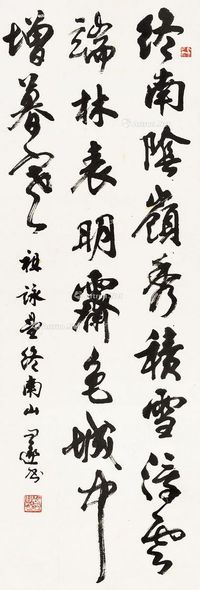 終南陰嶺秀積雪浮雲
端林表明霽色城中
增暮寒
祖詠望終南山